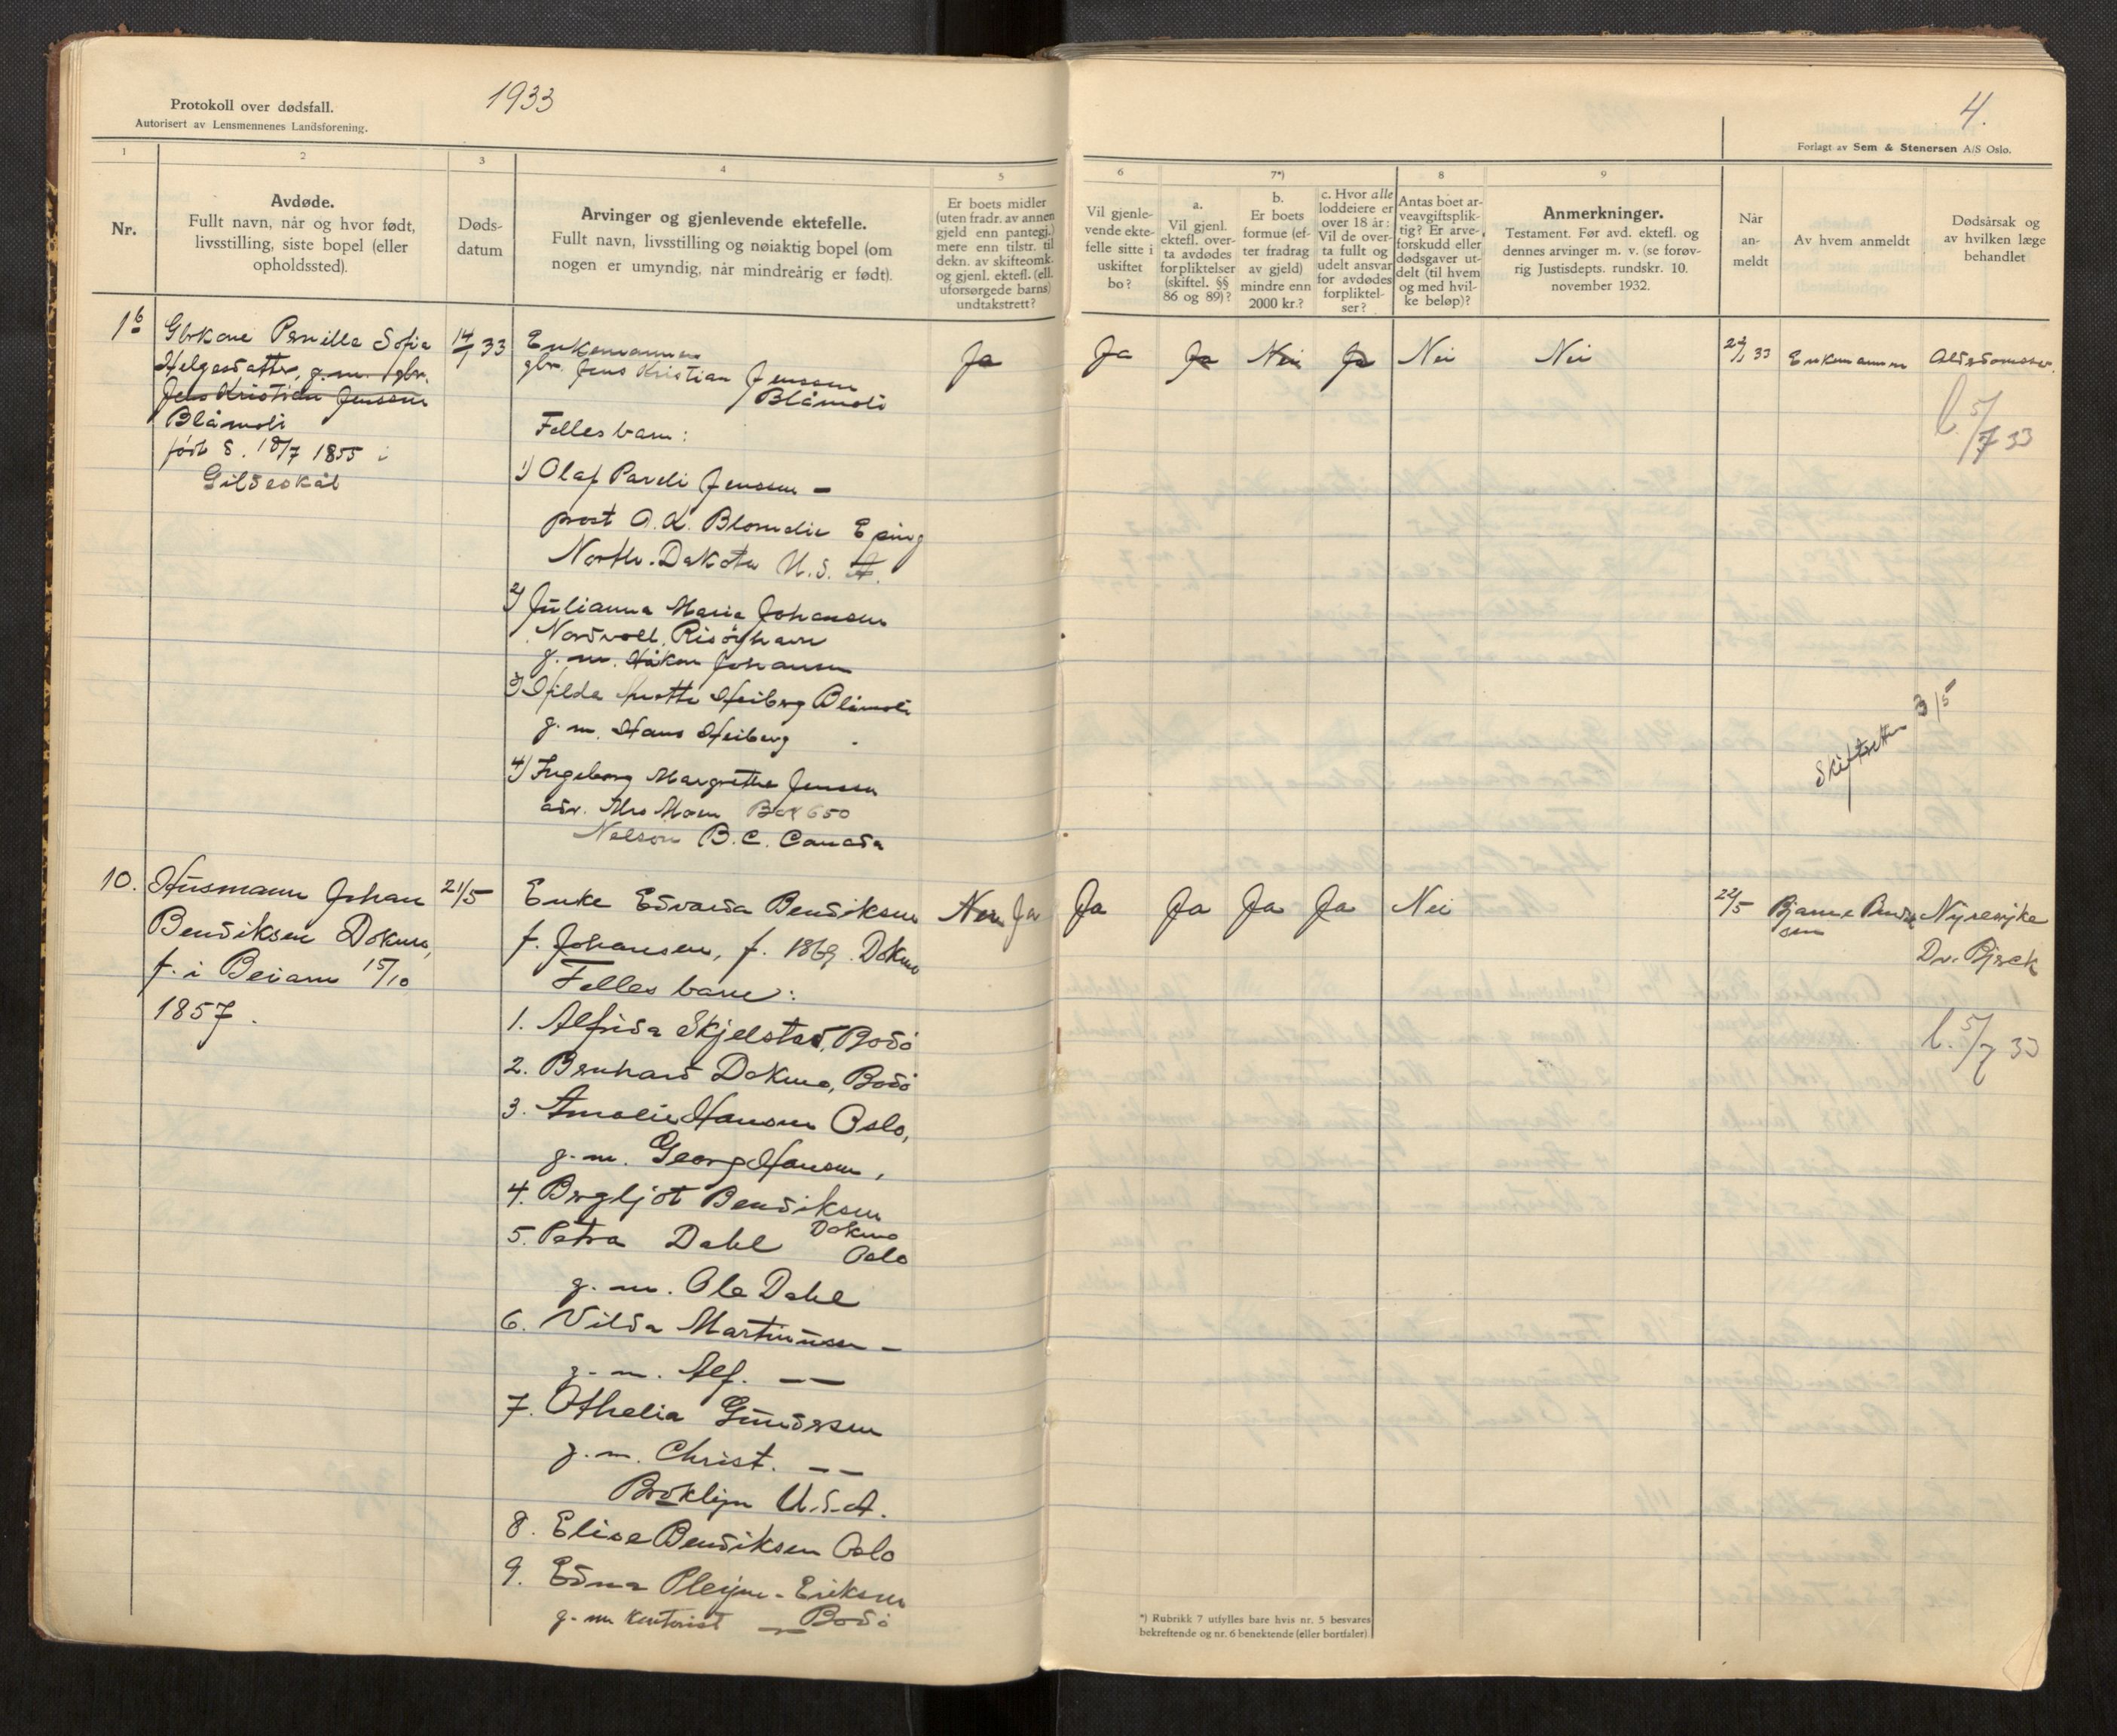 Protokoll over dødsfall.
Autorisert av Lensmennenes Landsforening.
1933
4.
Forlagt av Sem & Stenersen A/S Oslo.
1
2
3
4
5
6
7*)
8
9
Nr.
Avdøde.
Fullt navn, når og hvor født,
livsstilling, siste bopel (eller
opholdssted).
Døds-
datum
Arvinger og gjenlevende ektefelle.
Fullt navn, livsstilling og nøiaktig bopel (om
nogen er umyndig, når mindreårig er født).
Er boets midler
(uten fradr. av annen
gjeld enn pantegj.)
mere enn tilstr. til
dekn. av skifteomk.
og gjenl. ektef.(ell.
uforsørgede barns)
undtakstrett?
Vil gjenle-
vende ekte-
felle sitte i
uskiftet
bo?
a.
Vil gjenl.
ektefl. over-
ta avdødes
forpliktelser
(skiftel. §§
86 og 89)?
b.
Er boets
formue (ef-
ter fradrag
av gjeld)
mindre enn
2000 kr.?
c. Hvor alle
loddeiere er
over 18 år:
Vil de over-
ta fullt og
udelt ansvar
for avdødes
forpliktel-
ser?
Antas boet ar-
veavgiftsplik-
tig? Er arve-
forskudd eller
dødsgaver ut-
delt (til hvem
og med hvil-
ke beløp)?
Anmerkninger.
Testament. Før avd. ektefl. og
dennes arvinger m. v. (se forøv-
rig Justisdepts. rundskr. 10.
november 1932.
Når
an-
meldt
Av hvem anmeldt
Dødsårsak og
av hvilken læge
behandlet
1 b
Gbrkone Pernille Sofia
Helgesdatter, g.m. gbr.
Jens Kristian Jenssen
Blåmoli
født d. 18/7 1855 i
Gildeskål
14/1 33
Enkemannen
gbr. Jens Kristian Jenssen
Blåmoli
Felles barn:
1) Olaf Pareli Jenssen –
post Eping
North. Dakota U.S.A.
2) Julianna Maria Johansen
Nordvoll, Risøyhavn
g.m. Håkon Johansen
3) Hilda Heiberg Blåmoli
g.m. Hans Heiberg
4) Ingeborg Margrethe Jenssen
adr. Mrs Moen Box 650
Nelson B.C. Canada
Ja
Ja
Ja
Nei
Ja
Nei
Nei
24/1 33
Enkemannen
Alderdomssv.
l. 5/7 33
Skifteretten 3/5
10.
Husmann Johan
Bendiksen Dokmo,
f. i Beiarn 15/10
1857.
21/5
Enke Edvarda Bendiksen
f. Johansen, f. 1869. Dokmo
Felles barn:
1. Alfrida Skjelstad, Bodø
2. Bernhard Dokmo, Bodø
3. Amalie Hansen Oslo,
g.m. Georg Hansen,
4. Bergljot Bendiksen
Dokmo
5. Petra Dahl Oslo
g.m. Ole Dahl
6. Vilda Martinussen –
g.m. Alf. — —
7. Othelia Gundersen
g.m. Christ. — —
Broklyn U.S.A.
8. Elise Bendiksen Oslo
9. Edna Pleym-Eriksen
g.m. kontorist — Bodø
Nei Ja
Ja
Ja
Ja
Ja
Nei
22/5
Bjarne Bendik
sen
Nyresyke
Dr. Bjrek
l. 5/7 33
*) Rubrikk 7 utfylles bare hvis nr. 5 besvares
bekreftende og nr. 6 benektende (eller bortfaler).